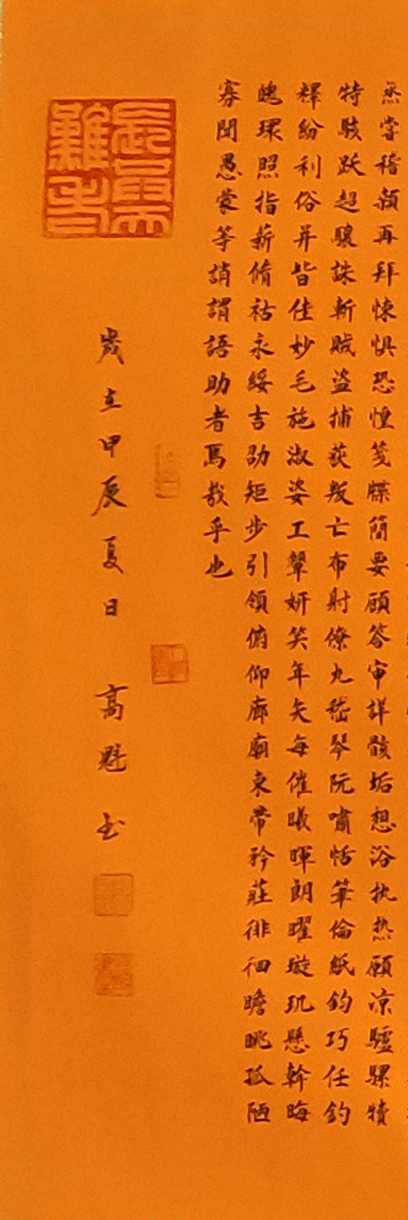 烝嘗稽顙再拜悚惧恐惶笺牒簡要顧答审詳骸垢想浴执热願凉驢騾犢
特駭跃超驤誅斬贼盗捕获叛亡布射僚丸嵇琴阮嘯恬筆倫紙鈞巧任釣
釋紛利俗并皆佳妙毛施淑姿工颦妍笑年矢每催曦暉朗曜璇玑懸斡晦
魄環照指薪脩祜永綏吉劭矩步引領俯仰廊廟束帶矜莊徘徊瞻眺孤陋
寡聞愚蒙等誚謂語助者焉哉乎也
歲立甲辰夏日 高魁书